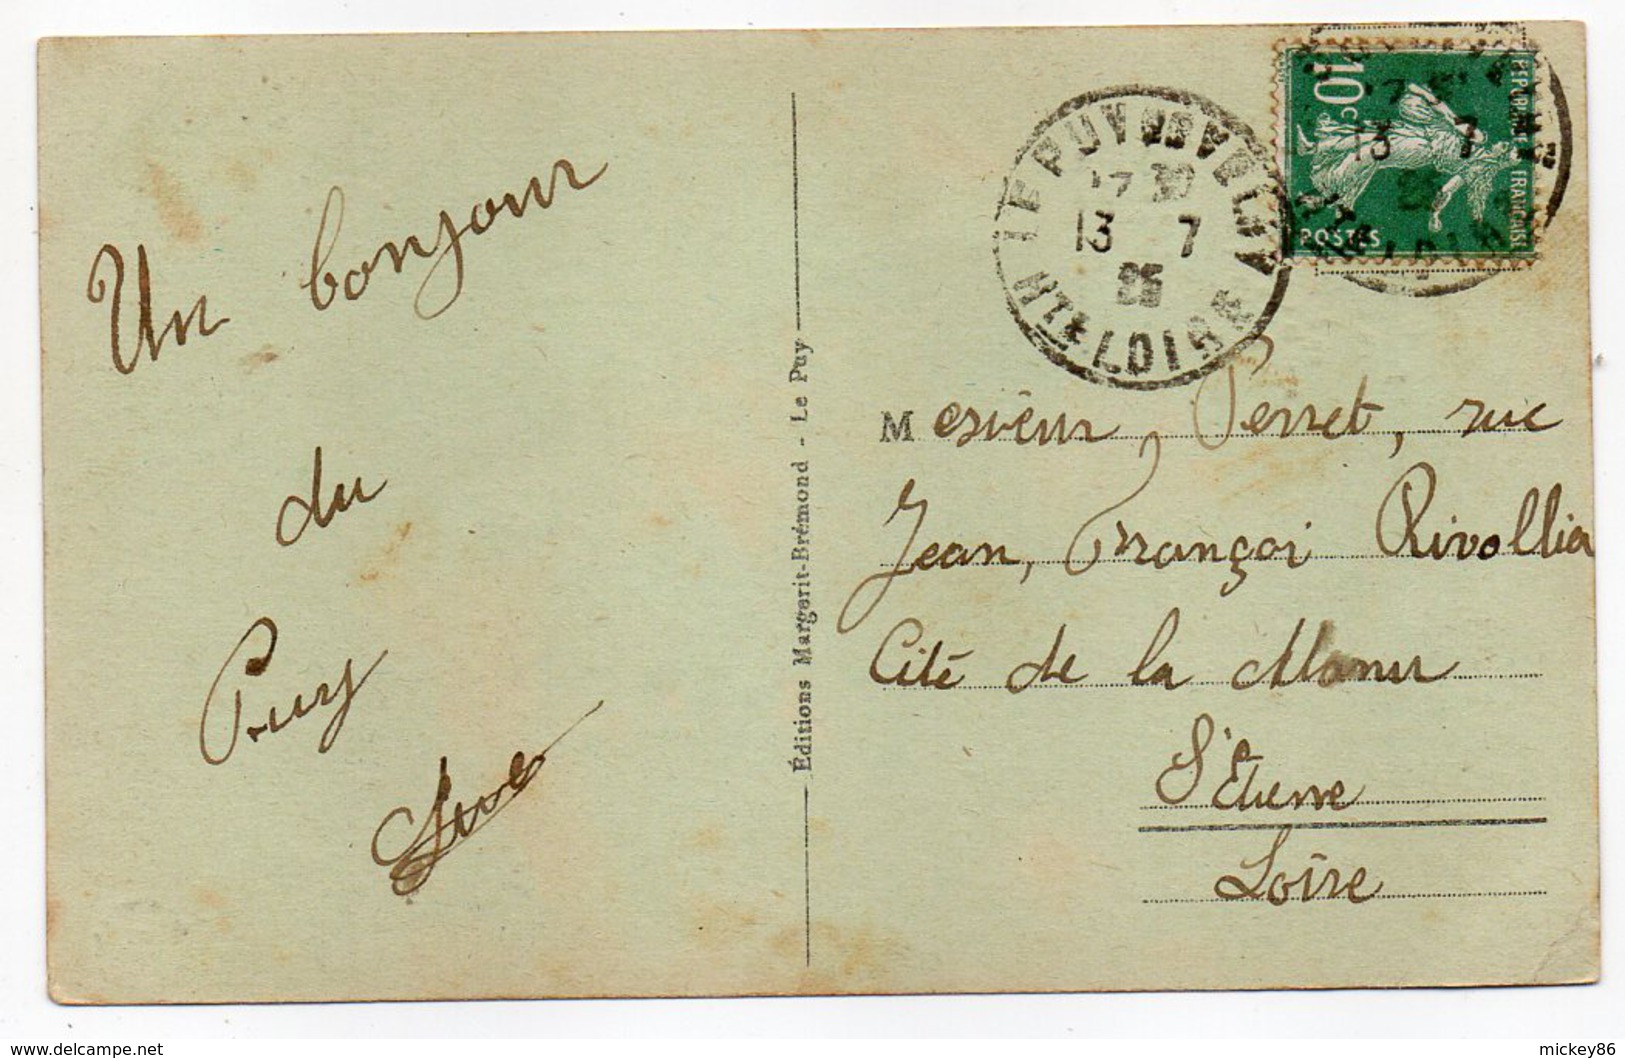 Un bonjour
du
Puy
Éditions Margerit-Brémond - Le Puy
LE PUY
17 30
13 7
25
HTE LOIRE
10c
REPUBLIQUE FRANÇAISE
POSTES
13 7
Mesieur Perret, rue
Jean, François Rivollia
Cité de la Manu
St Etienne
Loire
www.delcampe.net
mickey86